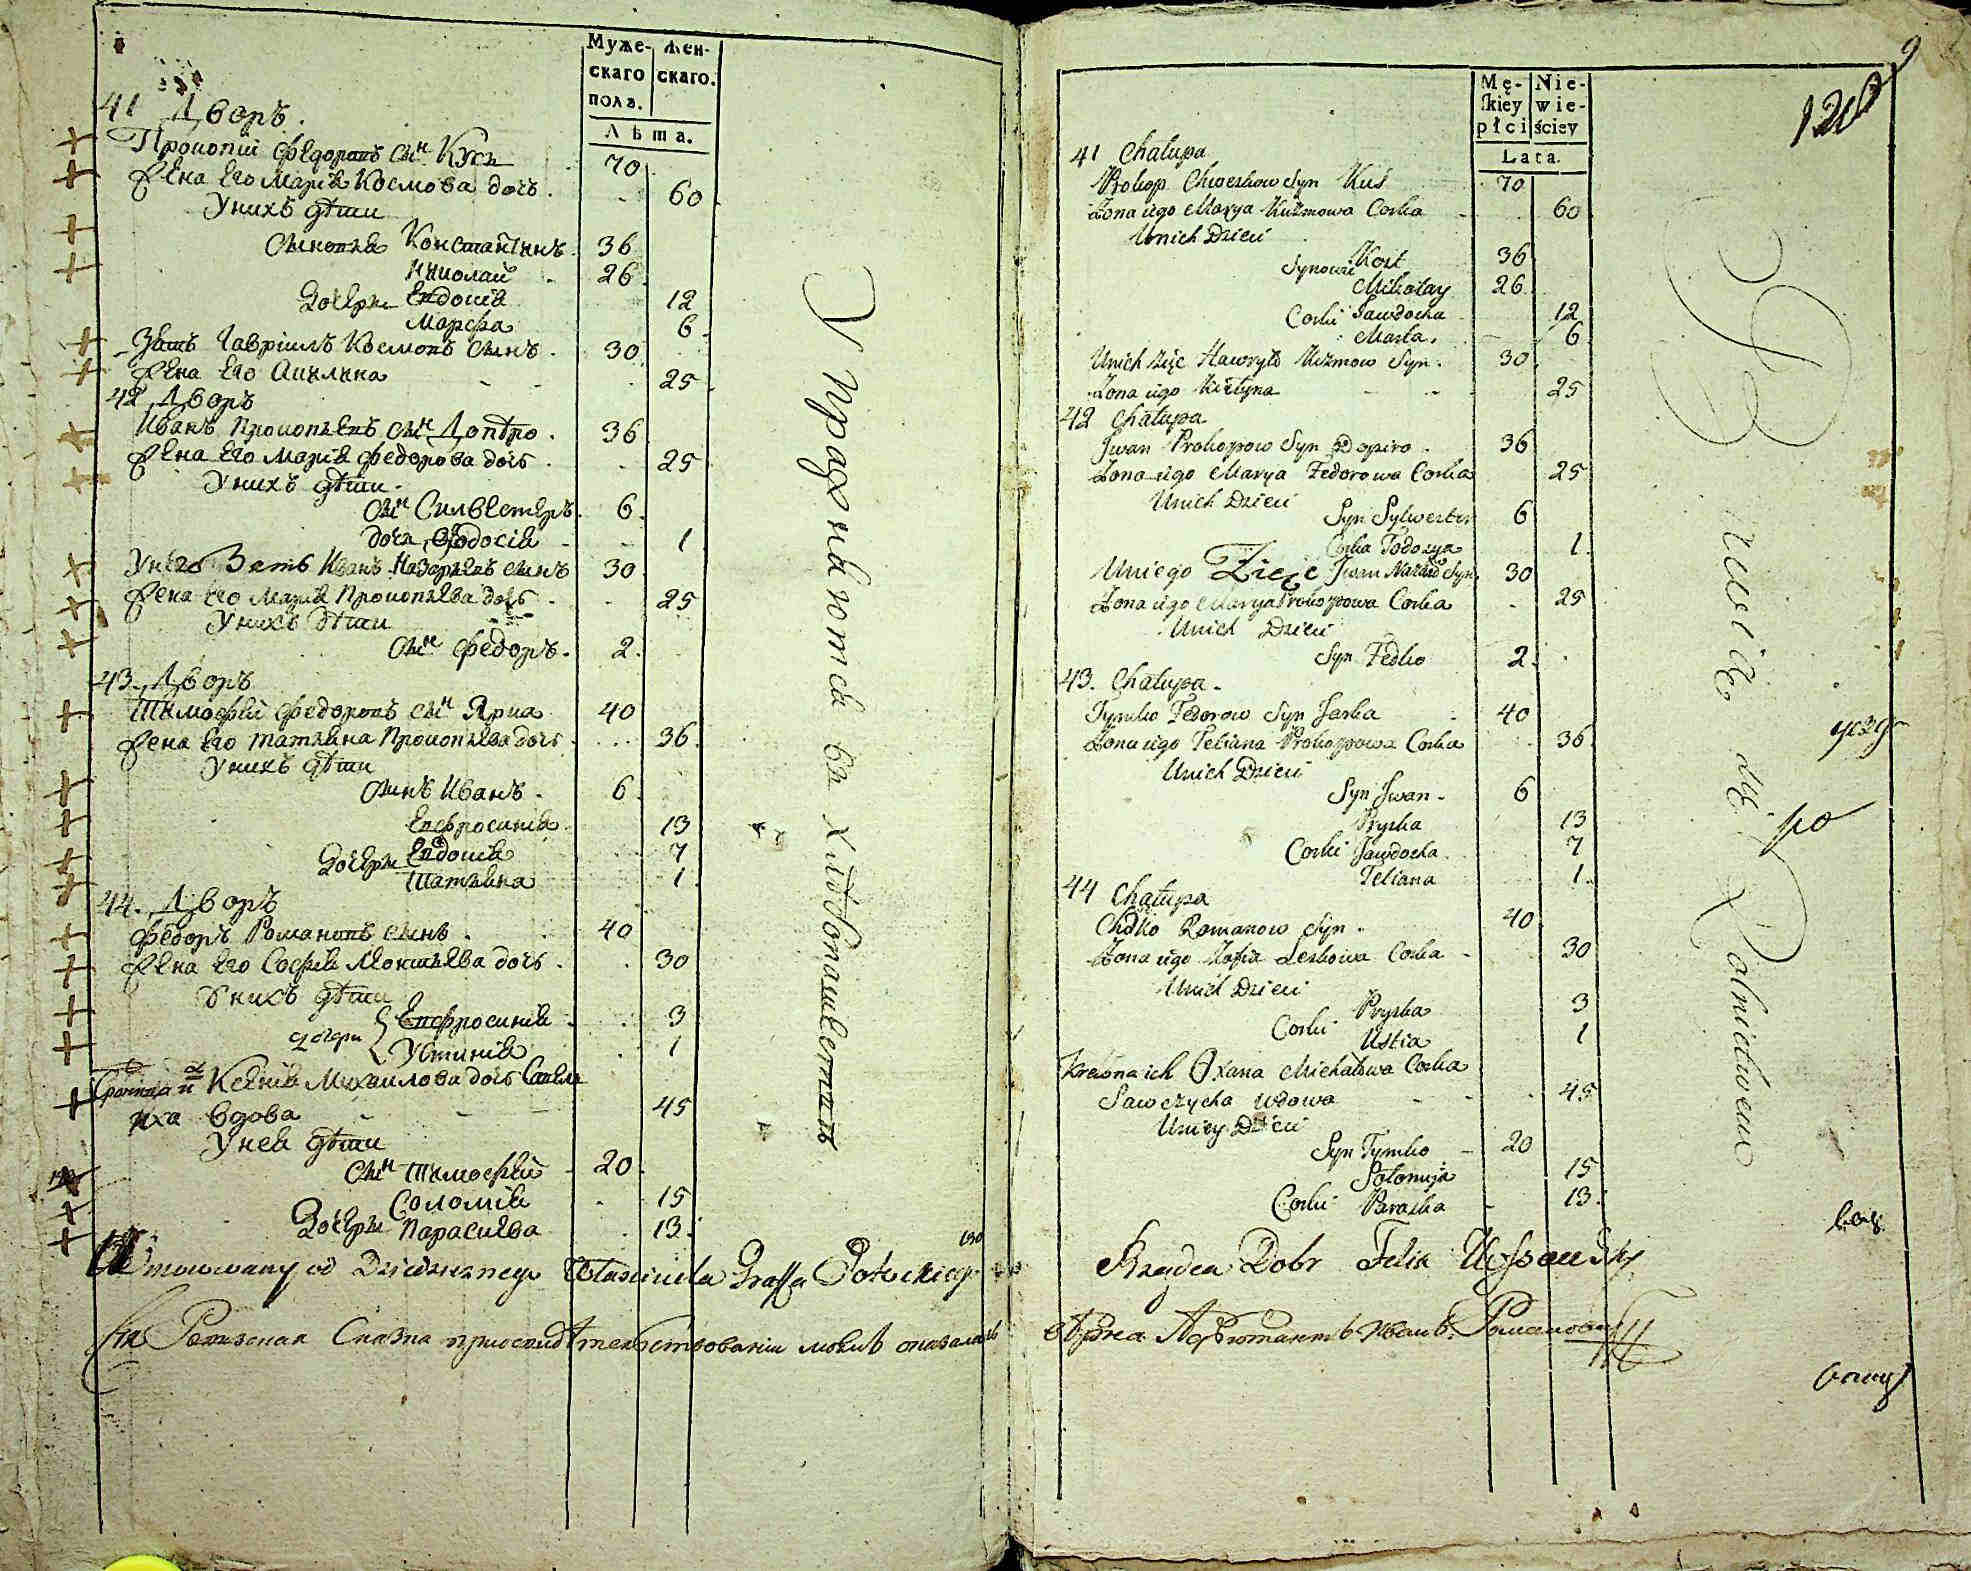 Муже-
скаго
пола.
Жен-
скаго.
Лѣта.
41 Дворъ.
Прокопій Федоровъ сынъ Кусь 70
Жена его Марія Космова дочь. 60
У нихъ дѣти
Сыновья Константинъ. 36
Николай 26
Дочери Евдокія 12
Марфа 6
Зять Гавріилъ Космовъ сынъ. 30
Жена его Акилина 25
42 Дворъ
Иванъ Прокопьевъ сынъ Допѣро. 36
Жена его Марія Федорова дочь. 25
У нихъ дѣти.
сынъ Силвестеръ. 6
дочь Феодосія 1
У него Зять Иванъ Назарьевъ сынъ 30
Жена его Марія Прокопьева дочь 25
У нихъ дѣти
сынъ Федоръ. 2
43. Дворъ
Тимофѣй Федоровъ сынъ Ярка 40
Жена его Татьяна Прокопьева дочь 36
У нихъ дѣти
сынъ Иванъ. 6
Евфросинія 13
Дочери Евдокія 7
Татьяна 1
44. Дворъ
Федоръ Романовъ сынъ. 40
Жена его Софія Леонтьева дочь. 30
У нихъ дѣти
дочери Евфросинія 3
Устинія 1
Ксенія Михайлова дочь Савчи
иха вдова 45
У ней дѣти
сынъ Тимофѣй 20
Соломія 15
Дочери Параскева 13
Упражняются въ хлѣбопашествѣ
od Dziedzicznego Własciciela Graffa Potockiego
Ревизская Сказка при освидѣтельствованіи мною оказалась
Mę-
skiey
płci
Nie-
wie-
ściey
Lata.
9
41 Chałupa
Prokop Chwedkow Syn Kuś 70
Żona iego Marya Kuźmowa Corka 60
U nich Dzieci
Synowie Kost 36
Mikołay 26
Corki Jawdocha 12
Marta. 6
U nich Zięć Hawryło Kuzmow Syn. 30
Żona iego Kiłyna 25
42 Chałupa
Jwan Prokopow Syn Dopiro. 36
Żona iego Marya Fedorowa Corka 25
U nich Dzieci
Syn Sylwester 6
Corka Todosya 1
U niego Zięć Jwan Nazarow Syn. 30
Żona iego Marya Prokopowa Corka 25
U nich Dzieci
Syn Fedko 2
43. Chałupa.
Tymko Fedorow Syn Jarka 40
Żona iego Tetiana Prokopowa Corka 36
U nich Dzieci
Syn Jwan. 6
Pryska 13
Corki Jawdocha. 7
Tetiana 1
44 Chałupa
Romanow Syn. 40
Żona iego Zofia Leskowa Corka 30
U nich Dzieci
Pryska 3
Corki Ustia 1
Krewna ich Oxana Michałowa Corka
Sawczycha wdowa 45
U niey Dzieci
Syn Tymko 20
Sołomija 15
Corki Paraska 13
Rządca Dobr Felix
вѣрна Адъютантъ Иванъ Романовъ